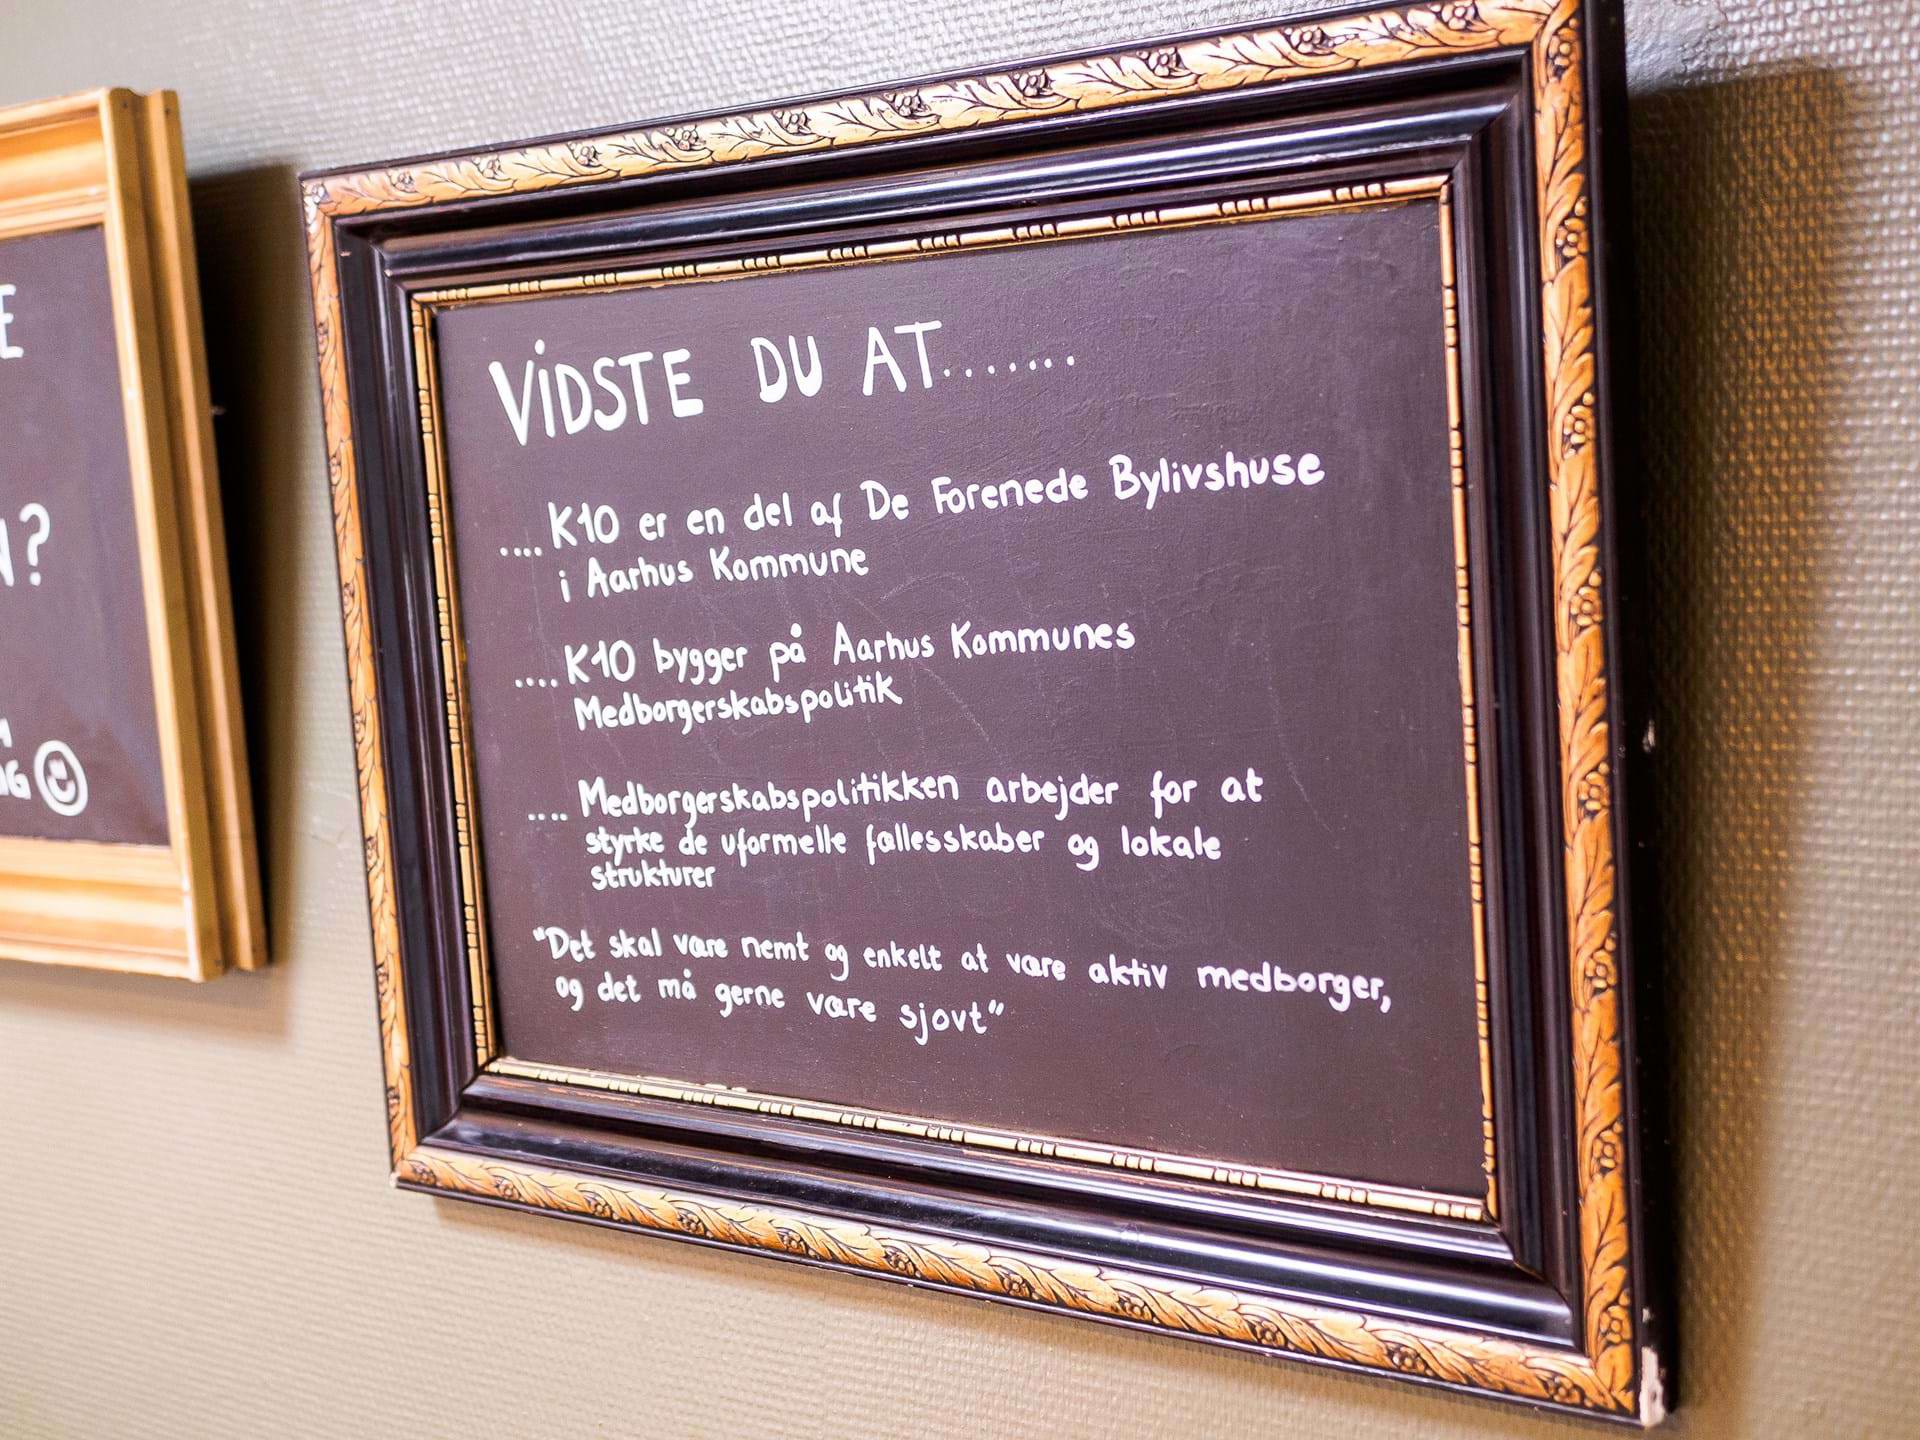 E
N?
OG
VIDSTE DU AT.......
....K10 er en del af De Forenede Bylivshuse
i Aarhus Kommune
....K10 bygger på Aarhus Kommunes
Medborgerskabspolitik
.... Medborgerskabspolitikken arbejder for at
styrke de uformelle fællesskaber og lokale
strukturer
"Det skal være nemt og enkelt at være aktiv medborger,
og det må gerne være sjovt"